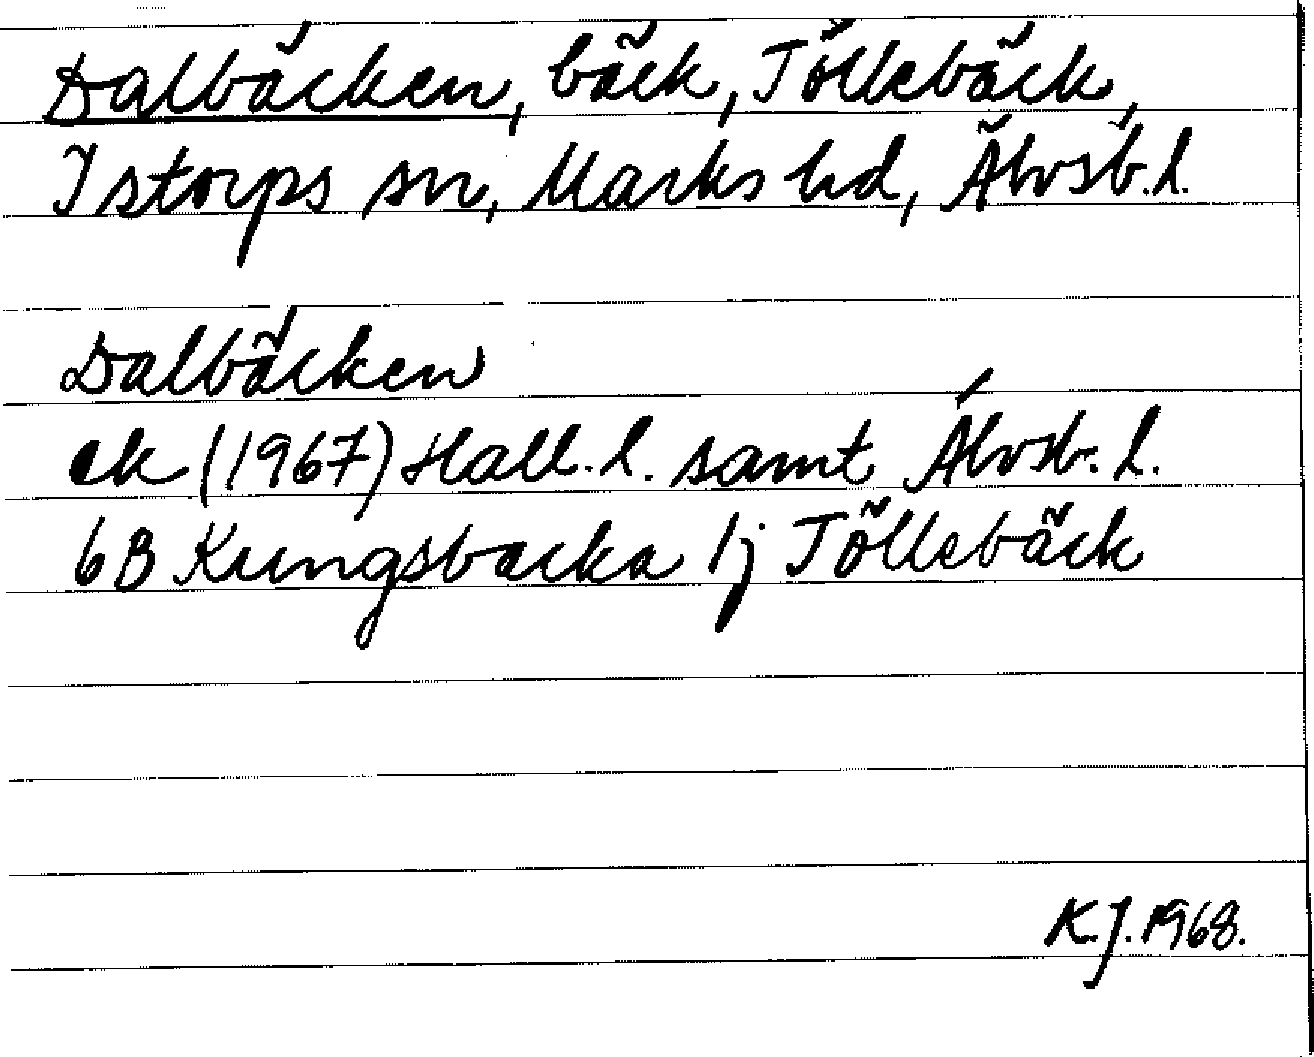 Dalbäcken, bäck, Töllebäck,
Istorps sn, Marks hd, Älvsb. l.
Dalbäcken
ek (1967) Hall. l. samt Älvsb. l.
6B Kungsbacka 1j Töllebäck
K.J. 1968.